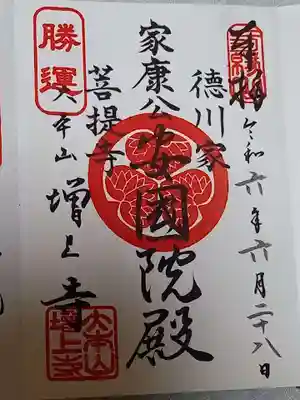 奉拝
令和六年六月二十八日
徳川家
家康公安國院殿
菩提寺
勝運
大本山増上寺
大本山
増上寺